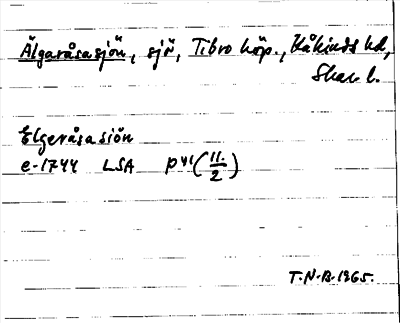 Älgaråsasjön, sjö, Tibro köp., Kåkinds hd,
Skar. l.
Elgeråsa siön
e-1744 LSA P41 (11/2)
T.N.B. 1965.